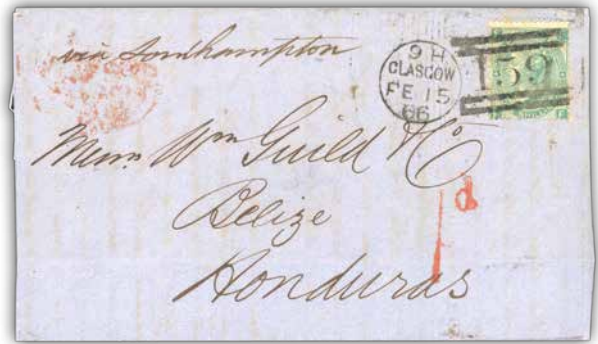 via Southampton
9 H
GLASGOW
FE 15
66
159
Messrs Wm Guild & Co
Belize
1d
Honduras